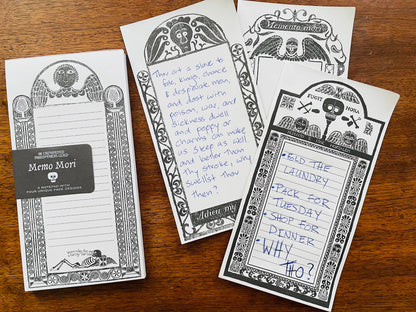 Memo Mori
A NOTEPAD WITH
FOUR UNIQUE PAGE DESIGNS
Thou art a slave to
fate, king, chance
& desperate man,
and dost with
poison, war, and
sickness dwell
and poppy or
charms can make
us sleep as well
and better than
thy stroke; why
swell'st thou
then?
Adieu, my
Memento mori
FUGIT HORA
• FOLD THE
LAUNDRY
• PACK FOR
TUESDAY
• SHOP FOR
DINNER
• WHY
THO?